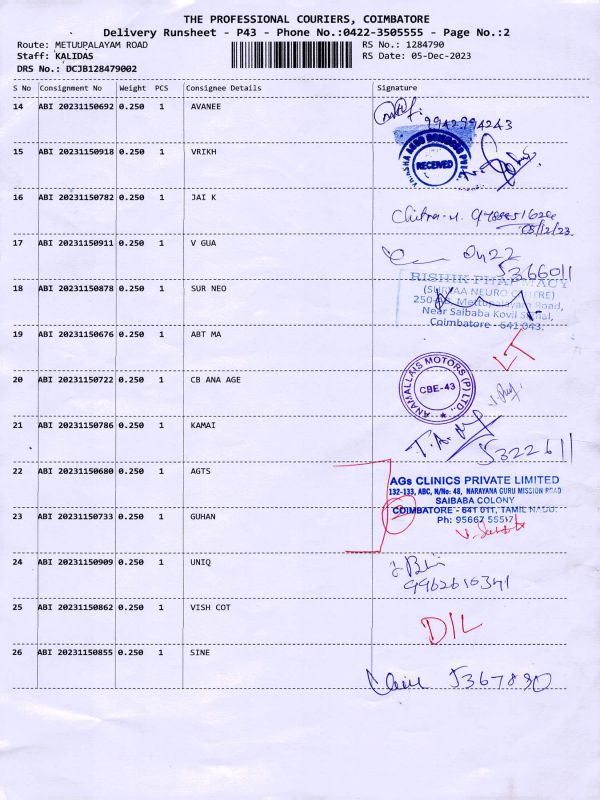 THE PROFESSIONAL COURIERS, COIMBATORE
Delivery Runsheet - P43 - Phone No.:0422-3505555 - Page No.:2
Route: METUUPALAYAM ROAD
RS No.: 1284790
Staff: KALIDAS
RS Date: 05-Dec-2023
DRS No.: DCJB128479002
S No Consignment No Weight PCS Consignee Details Signature
14 ABI 20231150692 0.250 1 AVANEE
9942994243
15 ABI 20231150918 0.250 1 VRIKH
RECEIVED
16 ABI 20231150782 0.250 1 JAI K
05/12/23
17 ABI 20231150911 0.250 1 V GUA
5366011
18 ABI 20231150878 0.250 1 SUR NEO
RISHIK PHARMACY
(SURYAA NEURO CENTRE)
Mettupalayam Road,
Near Saibaba Kovil Signal,
Coimbatore - 641 043.
19 ABI 20231150676 0.250 1 ABT MA
LT
20 ABI 20231150722 0.250 1 CB ANA AGE
ANAMALLAIS MOTORS (P) LTD.,
CBE-43
21 ABI 20231150786 0.250 1 KAMAI
5322611
22 ABI 20231150680 0.250 1 AGTS
AGs CLINICS PRIVATE LIMITED
132-133, ABC, N/No: 48, NARAYANA GURU MISSION ROAD
SAIBABA COLONY
COIMBATORE - 641 011, TAMIL NADU.
Ph: 95667 55517
23 ABI 20231150733 0.250 1 GUHAN
24 ABI 20231150909 0.250 1 UNIQ
25 ABI 20231150862 0.250 1 VISH COT
D/L
26 ABI 20231150855 0.250 1 SINE
5367830